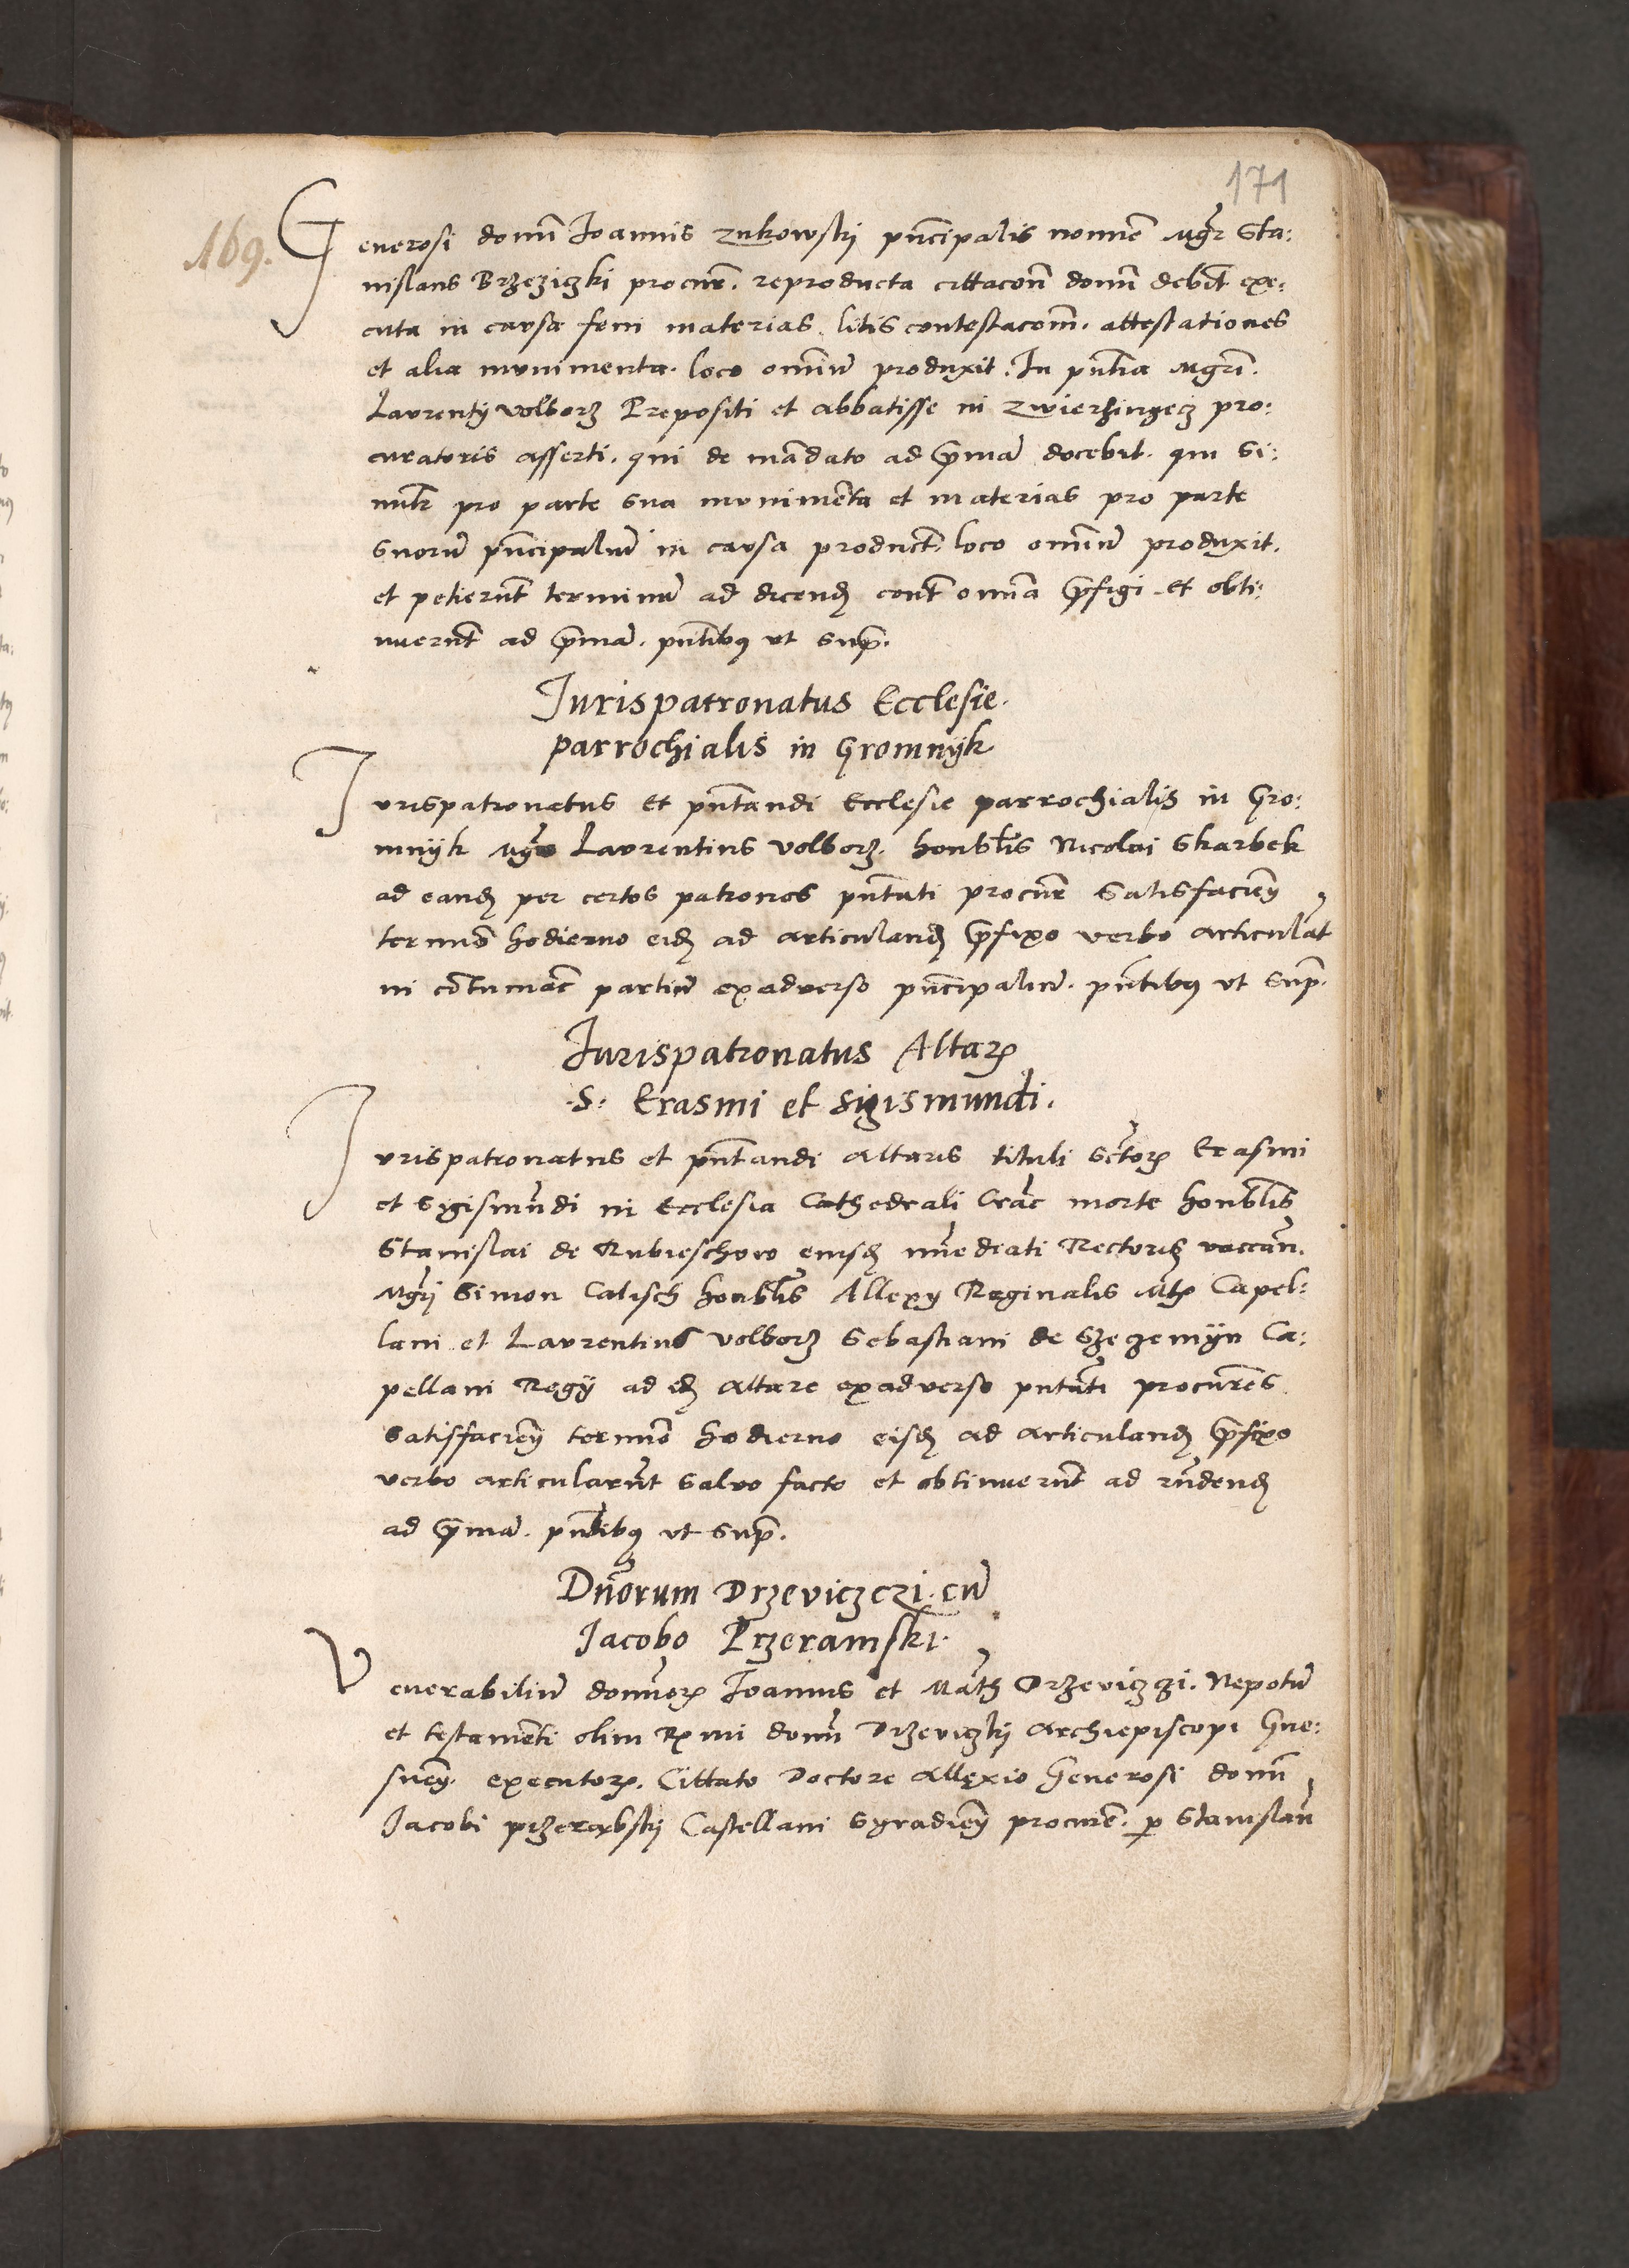 171
169.
Generosi domī Joannis Zukowskij pn̄cipalis nomīe Mgr̄ Sta:
nislaus Brzeziczki procur̄. reproducta cittacōn̄ domī debit̄ exe:
cuta in causa feni materias litis contestacōm̄. attestationes
et alia munimenta. loco omniū produxit. In pn̄tia Mgrī.
Laurentij Volborz Prepositi et abbatisse in Zwierzingecz pro:
curatoris asserti. qui de mādato ad p̄rimā docebit. qui si:
militr̄ pro parte sua munimēta et materias pro parte
suorū pn̄cipaliū in causa product. loco omniū produxit.
et petierūt terminū ad dicend cont̄ omnia p̄figi et obti:
nuerūt ad p̄rimā. pn̄tibus ut sup̄.
Jurispatronatus Ecclesie.
parrochialis in Gromnijk
Jurispatronatus et pn̄tandi Ecclesie parrochialis in Gro:
mnijk Mgr̄ Laurentius Volborz. honbl̄is Nicolai Skarbek
ad eand per certos patronos pn̄tati procur̄ satisfacieñ
termīo hodierno eid ad articuland p̄fixo verbo articulat
in cōtumac̄ partiū exadverso pn̄cipaliū. pn̄tibus ut sup̄.
Jurispatronatus Altaris
.S. Erasmi et Sigismundi.
Jurispatronatus et pn̄tandi altaris tituli Sctor̄ Erasmi
et Sigismūdi in Ecclesia Cathedrali Crac̄ morte honbl̄is
Stanislai de Rubieschow eiusd īmediati Rectoris vaccan̄.
Mgrī Simon Calisch honbl̄is Allexij Reginalis Mt̄ Capel:
lani et Laurentius Volborz Sebastiani de Szczemijn Ca:
pellani Regij ad id altare exadverso pntāti procur̄es
satisfacieñ termīo hodierno eisd ad articuland p̄fixo
verbo articularūt salvo facto et obtinuerūt ad rn̄dend
ad p̄rimā. pn̄tibus ut sup̄.
Dn̄orum Drzeviczczi. cū
Jacobo Przeramski.
Venerabiliū domōr̄ Joannis et Math Drzeviczgi. Nepotū
et testamēti olim Rxmi domī Drzeviczkij Archiepiscopi Gne:
snen̄. executor̄. Cittato Doctore Allexio Generosi domī
Jacobi przerąbskij Castellani Syradien̄ procur̄e. p Stanislaū